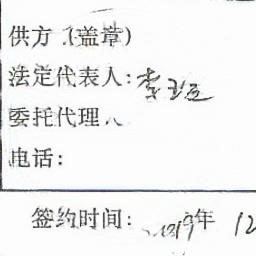 供方（盖章）
法定代表人：李玉运
委托代理人
电话：
签约时间：2019年 12